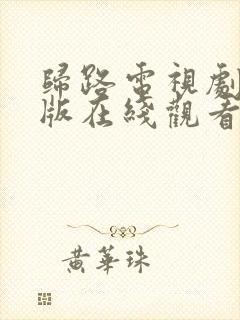 歸路電視劇
版在綫觀看
黃華珠